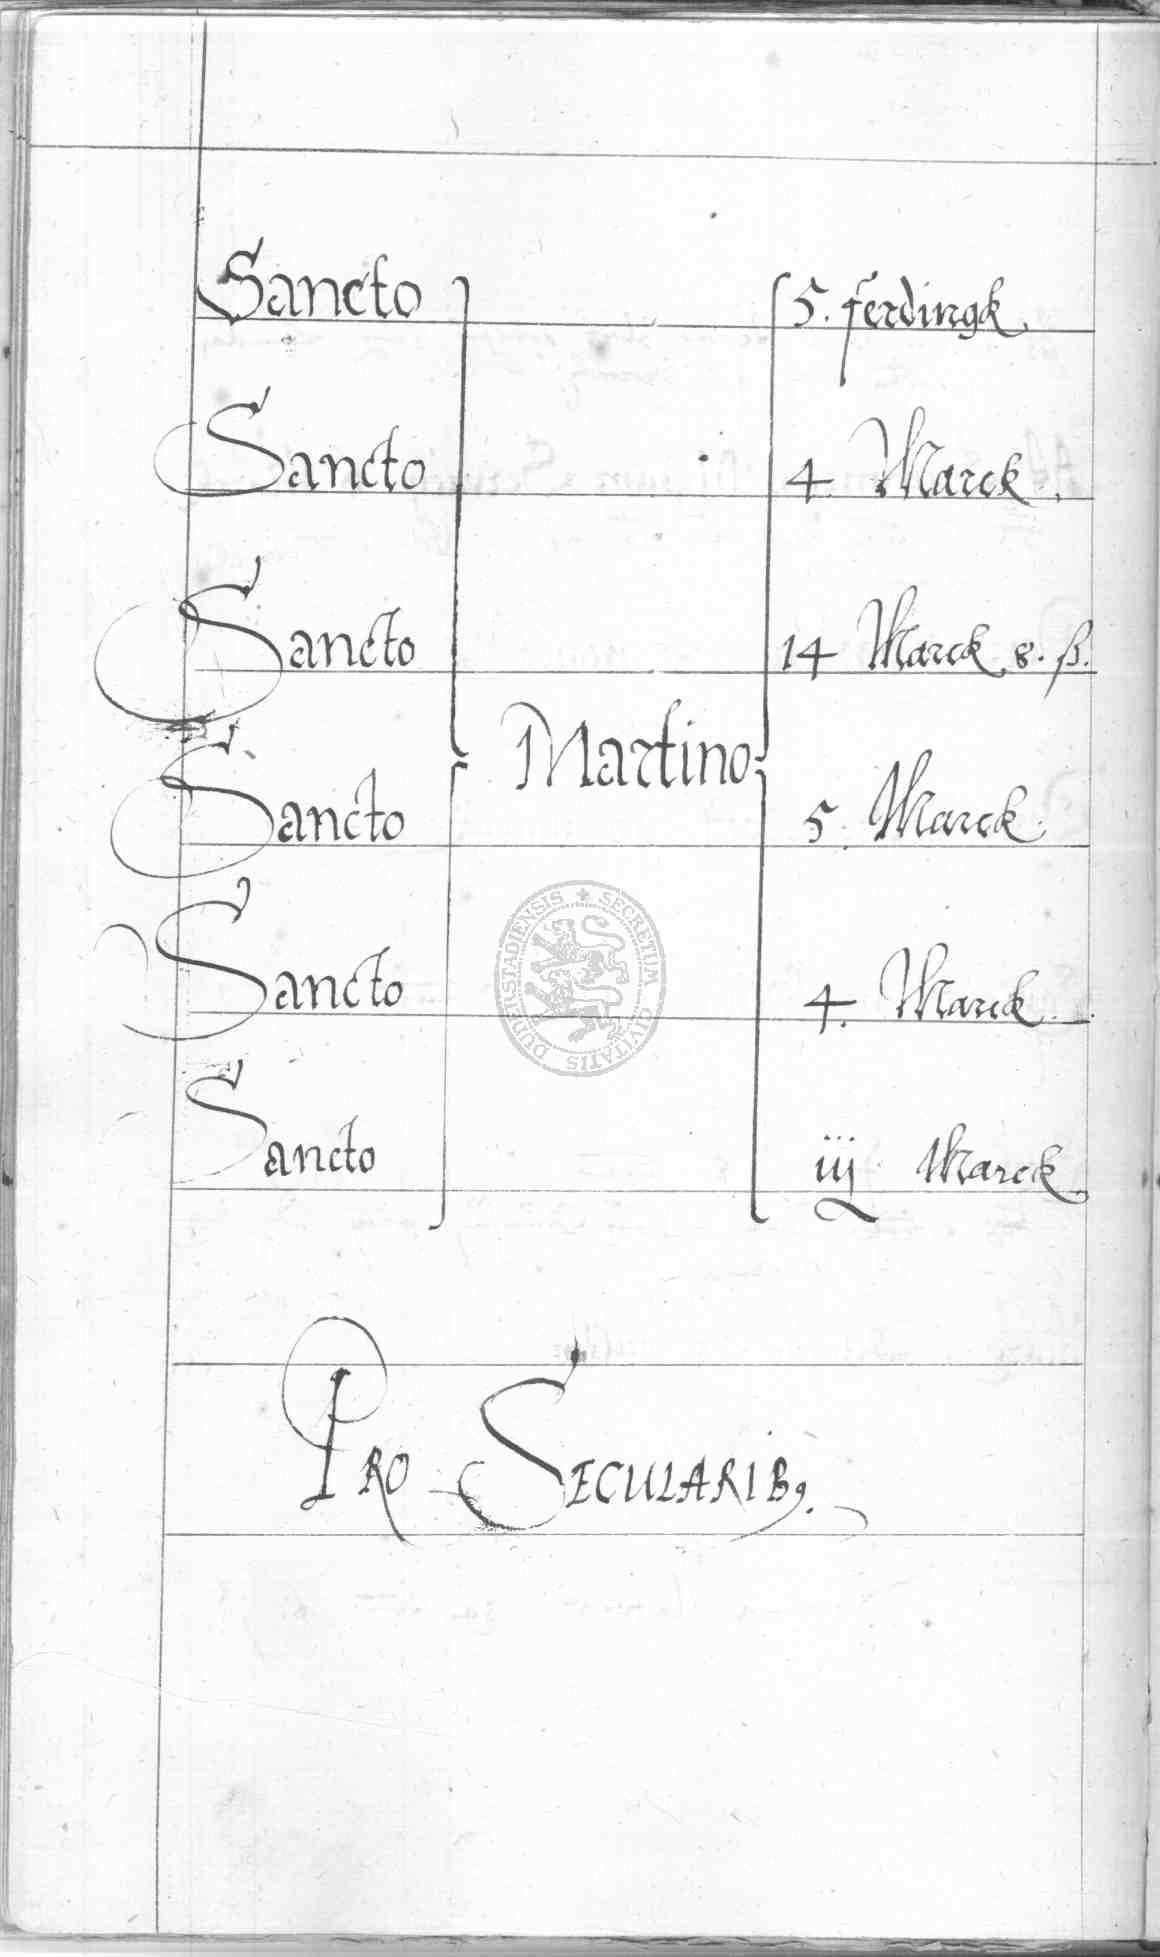 Sancto 5. ferdingk
Sancto 4 Marck.
Sancto 14 Marck 8. ß.
Martino
Sancto 5. Marck.
Sancto 4. Marck.
SECRETUM CIVITATIS DUDERSTADIENSIS
Sancto iij Marck
PRO SECULARIB9.